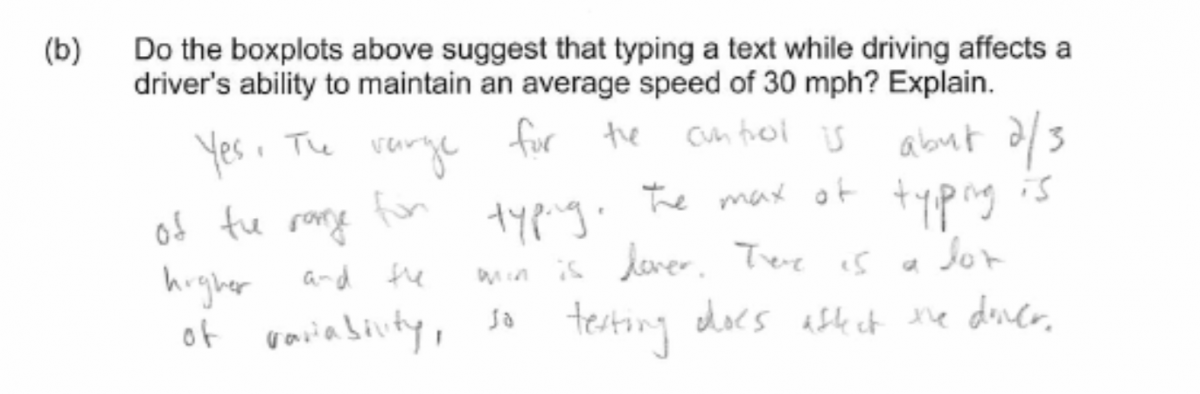 (b) Do the boxplots above suggest that typing a text while driving affects a
driver's ability to maintain an average speed of 30 mph? Explain.
Yes. The range for the control is about 2/3
of the range for typing. The max of typing is
higher and the min is lower. There is a lot
of variability, so texting does affect the driver.